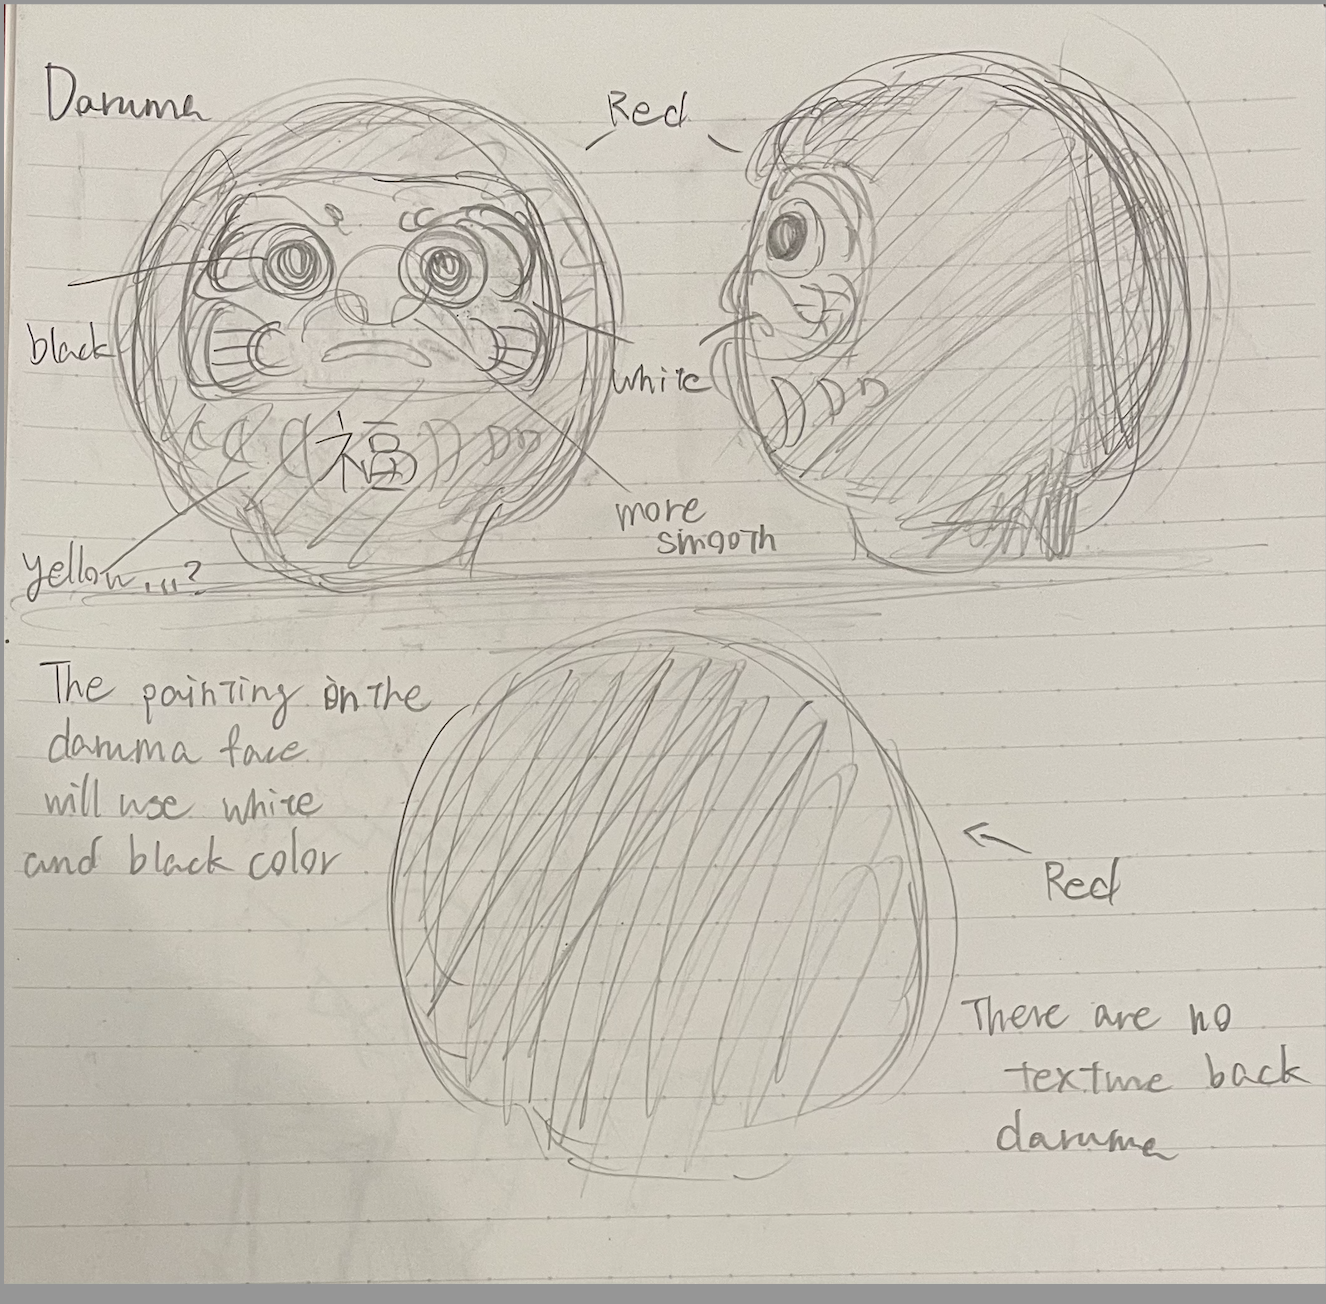 Daruma
Red
black
white
福
more
smooth
yellow...?
The painting on the
daruma face
will use white
and black color
Red
There are no
texture back
daruma